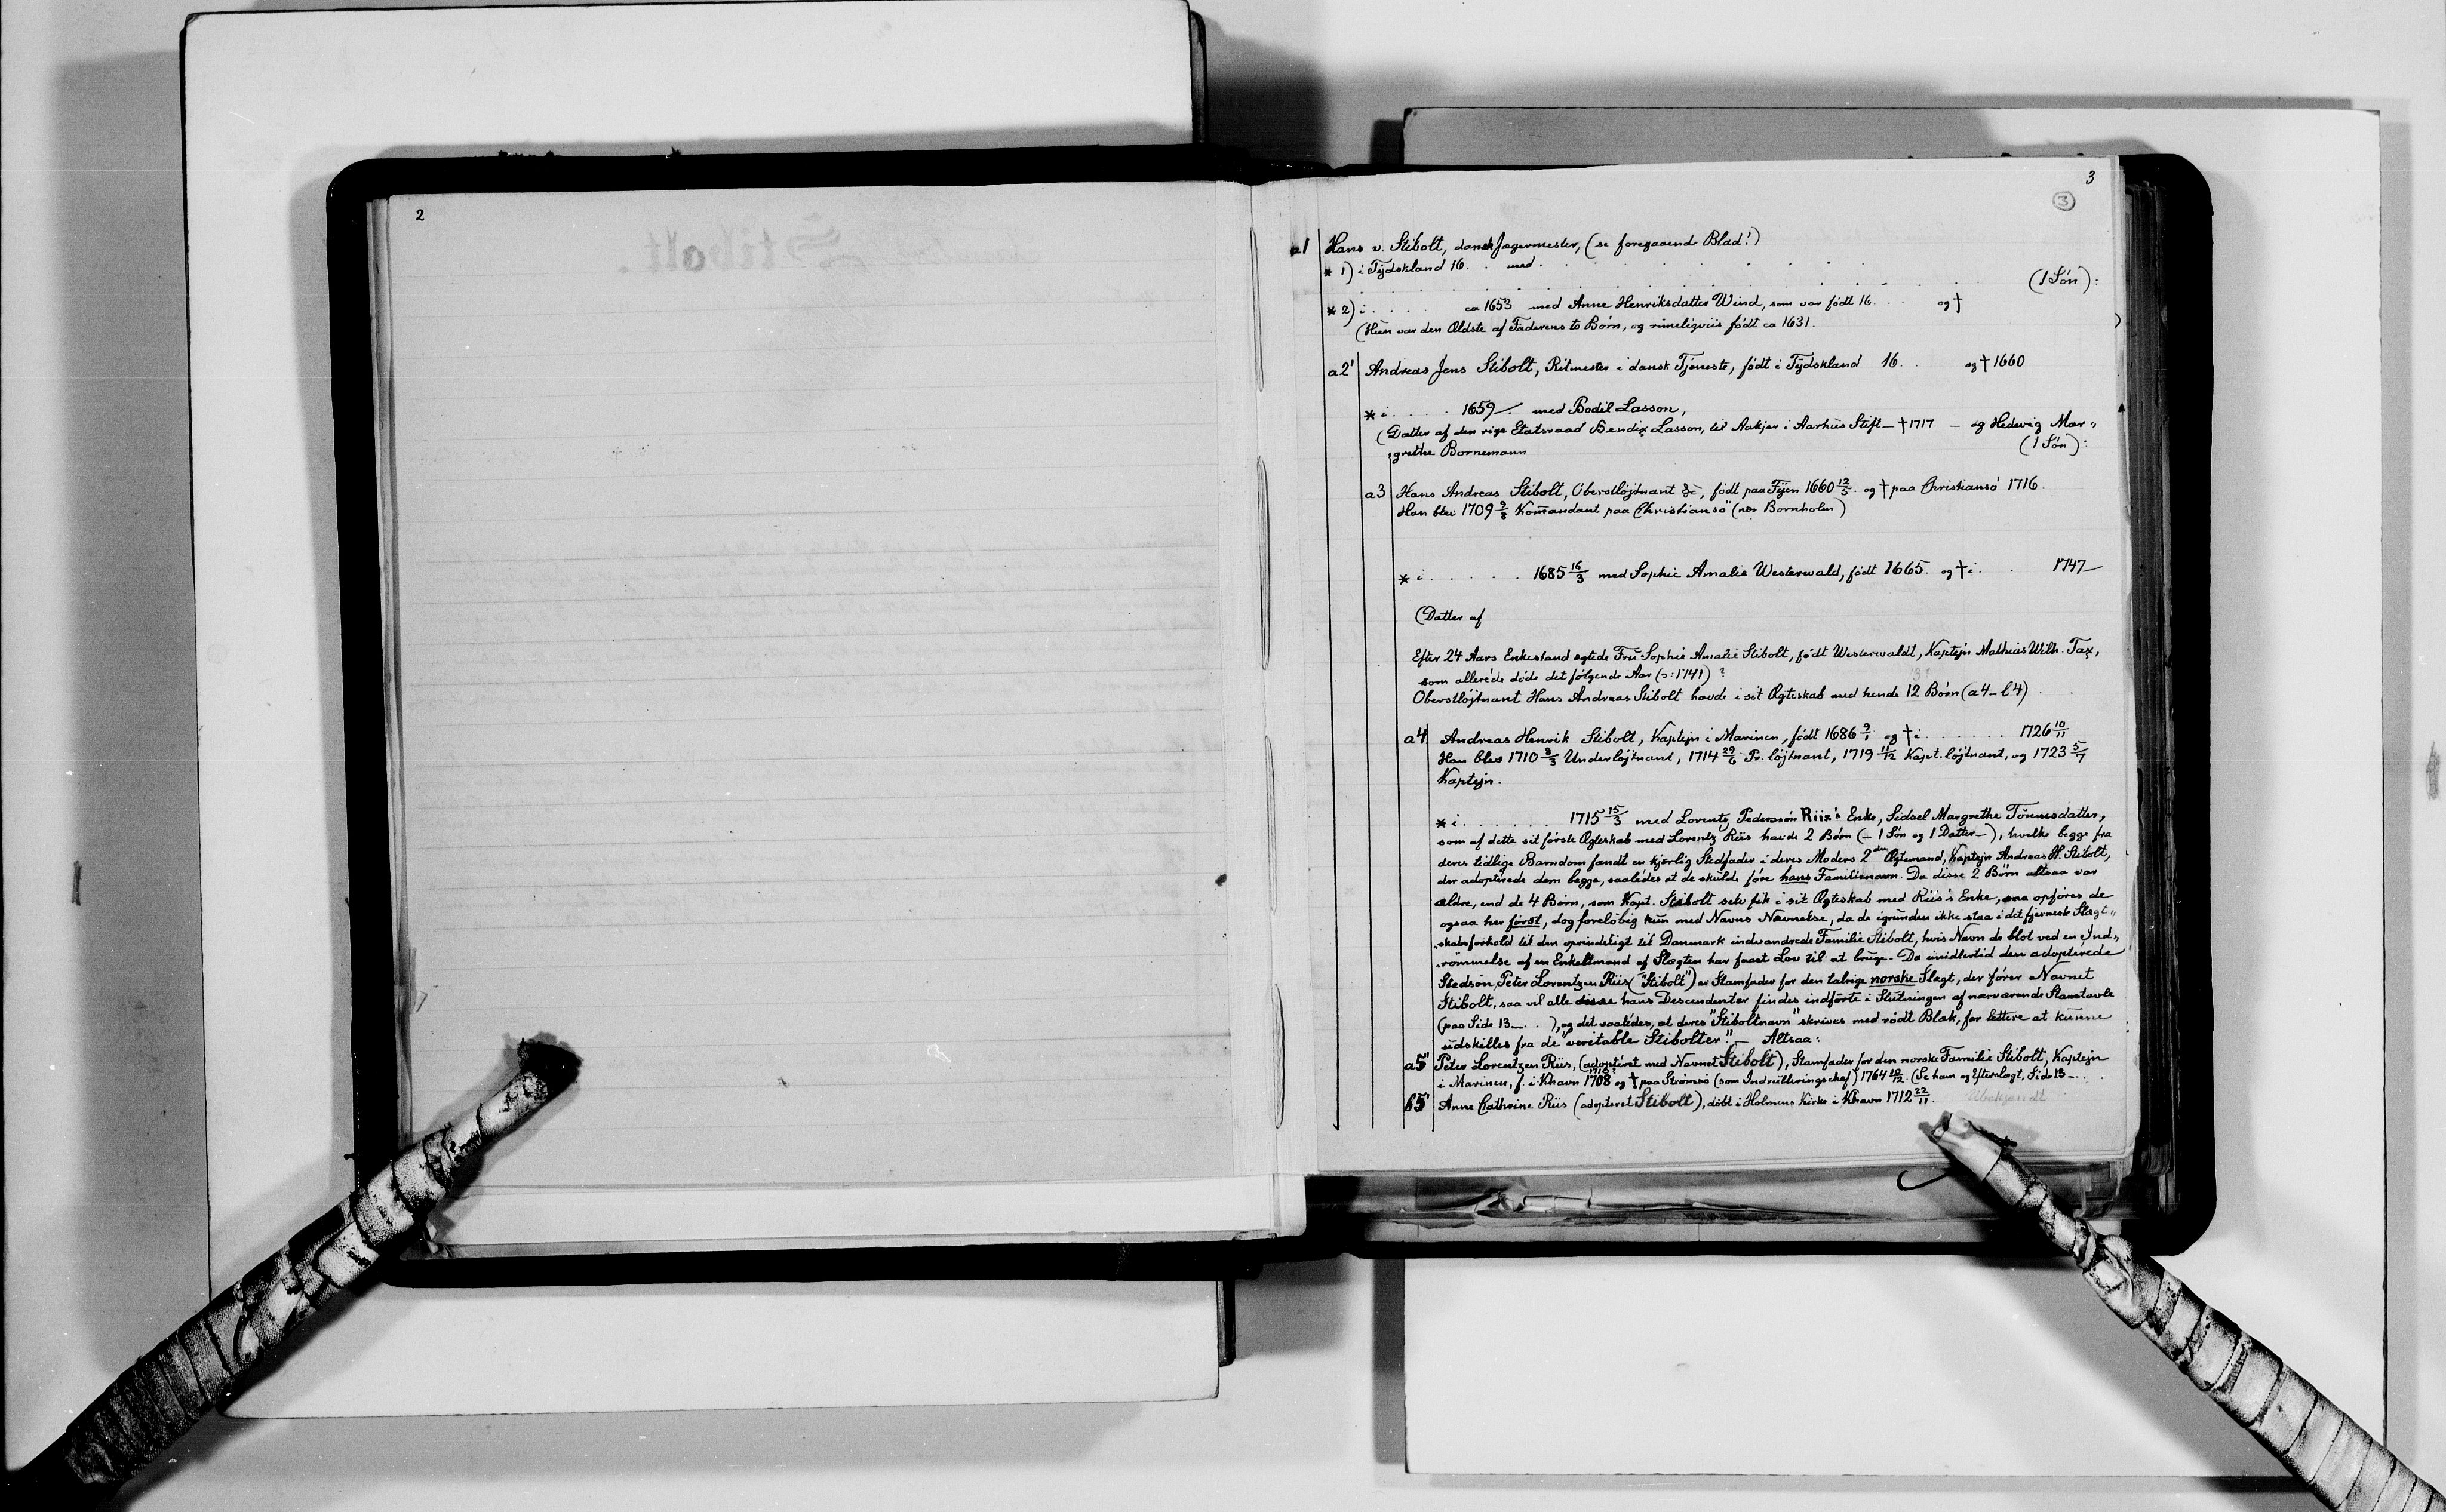 2
3
3
a1 Hans v. Stibolt, dansk Jagermester, (se foregaaende Blad!)
* 1) i Tydskland 16. . med . . . . . . .
. . . . . . . . . . . . . . . . (1 Søn):
* 2) i . . . . ca 1653 med Anne Henriksdatter Wind, som var født 16. . . og †
(Hun var den Ældste af Faderens to Børn, og rimeligviis født ca 1631.
a2' Andreas Jens Stibolt, Ritmester i dansk Tjeneste, født i Tydskland 16. . og † 1660
* i . . . . . 1659 — med Bodil Lasson,
(Datter af den rige Etatsraad Bendix Lasson, til Aakjær i Aarhus Stift — † 1717 — og Hedevig Mar„
grethe Bornemann (1 Søn):
a3 Hans Andreas Stibolt, Oberstløjtnant &c, født paa Fyen 1660 12/5. og † paa Christiansø 1716.
Han blev 1709 9/8 Kom̄andant paa Christiansø" (nær Bornholm)
* i . . . . . . . 1685 16/3 med Sophie Amalie Westerwald, født 1665. og † i . . 1747 —
(Datter af
Efter 24 Aars Enkestand ægtede Fru Sophie Amalie Stibolt, født Westerwaldt, Kaptejn Mathias Wilh. Tax,
som allerede døde det følgende Aar (ɔ: 1741) ?
Oberstløjtnant Hans Andreas Stibolt havde i sit Ægteskab med hende 12 Børn (a4-l4) .
a4 Andreas Henrik Stibolt, Kaptejn i Marinen, født 1686 9/1 og † i . . . . . . . . 1726 10/11
Han blev 1710 3/3 Underløjtnant, 1714 29/6 Pr. løjtnant, 1719 11/12 Kapt. løjtnant, og 1723 5/7
Kaptejn.
* i . . . . . . . 1715 15/3 med Lorentz Pederssøn Riis's Enke, Sidsel Margrethe Tönnesdatter,
som af dette sit første Ægteskab med Lorentz Riis havde 2 Børn (— 1 Søn og 1 Datter —), hvilke begge fra
deres tidlige Barndom fandt en kjærlig Stedfader i deres Moders 2den Ægtemand, Kaptejn Andreas H. Stibolt,
der adopterede dem begge, saaledes at de skulde føre hans Familienavn. Da disse 2 Børn altsaa var
ældre, end de 4 Børn, som Kapt. Stibolt selv fik i sit Ægteskab med Riis's Enke, saa opføres de
ogsaa her først, dog foreløbig kun med Navns Nævnelse, da de igrunden ikke staa i det fjerneste Slægt„
„skabsforhold til den oprindeligt til Danmark indvandrede Familie Stibolt, hvis Navn de blot ved en Ind„
„rømmelse af en Enkeltmand af Slægten har faaet Lov til at bruge. Da imidlertid den adopterede
Stedsøn, Peter Lorentzen Riis ("Stibolt") er Stamfader for den talrige norske Slægt, der fører Navnet
Stibolt, saa vil alle disse hans Descendenter findes indførte i Slutningen af nærværende Stamtavle
(paa Side 13—. . ), og det saaledes, at deres "Stiboltnavn" skrives med rødt Blæk, for lettere at kunne
udskilles fra de "veritable Stibolter". — Altsaa:
a5" Peter Lorentzen Riis, (adopteret med Navnet Stibolt), Stamfader for den norske Familie Stibolt, Kaptejn
i Marinen, f. i Khavn 1708 og † paa Strømsø (som Indrulleringschef) 1764 18/12. (Se ham og Efterslægt, Side 13 —. .
b5' Anne Cathrine Riis (adopteret Stibolt), døbt i Holmens Kirke i Khavn 1712 22/11. Ubekjendt